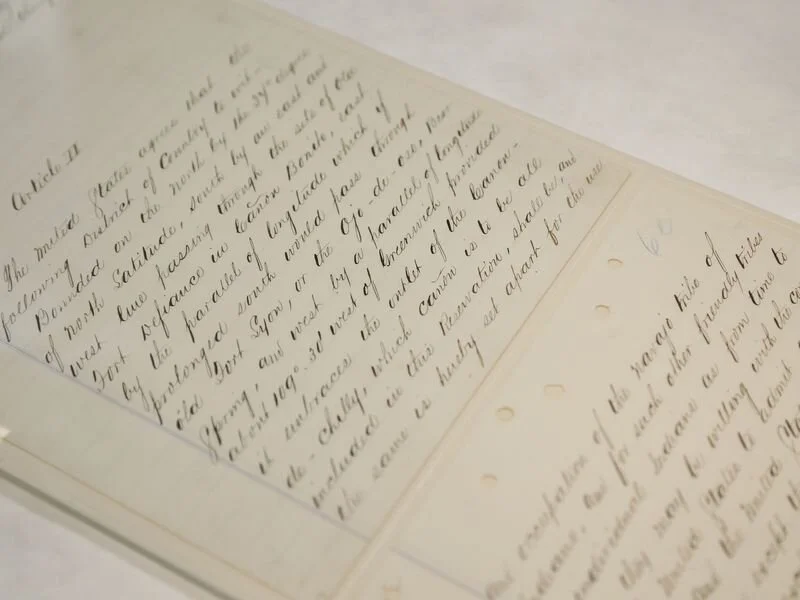 Article II
The United States agrees that the
following District of Country to wit-
Bounded on the North by the 37th degree
of North Latitude, South by an east and
west line passing through the site of Old
Fort Defiance in Cañon Bonito, east
by the parallel of longitude which if
prolonged south would pass through
old Fort Lyon, or the Ojo-de-oso, Bear
Spring, and west by a parallel of longitude
about 109º. 30' west of Greenwich provided
it embraces the outlet of the Canon-
de-Chilly, which cañon is to be all
included in this Reservation, shall be, and
the same is hereby set apart for the use
60
and occupation of the navajo tribe of
Indians, and for such other friendly tribes
individual Indians as from time to
they may be willing with the
United States to admit
and the United